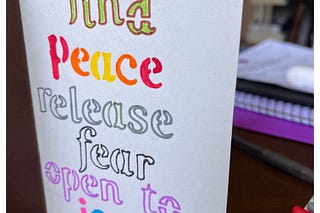 find
peace
release
fear
open to